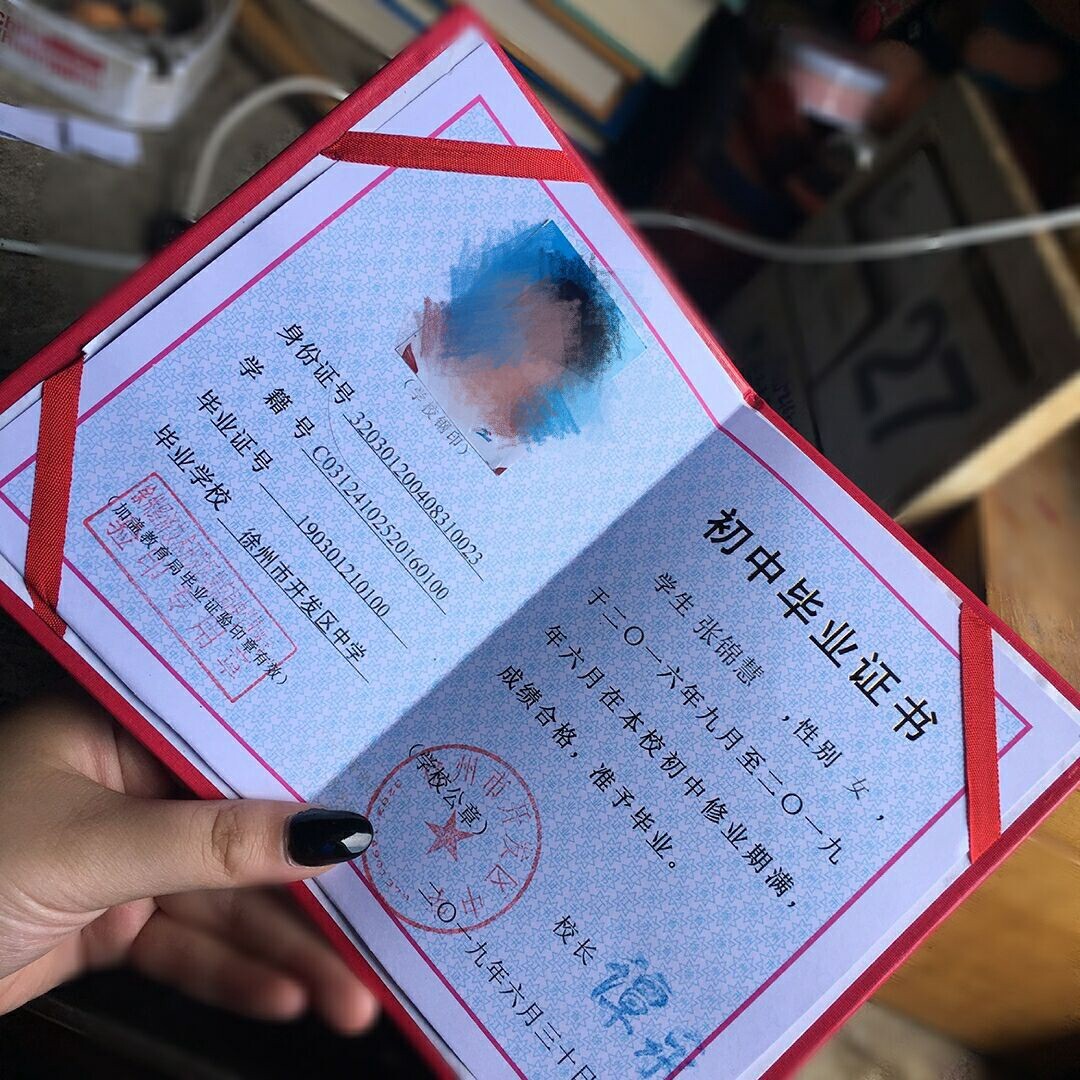 （学校钢印）
身份证号 320301200408310023
学籍号 C03124102520160100
毕业证号 190301210100
毕业学校 徐州市开发区中学
（加盖教育局毕业证验印章有效）
初中毕业证书
学生 张锦慧 ，性别 女，
于二〇一六年九月至二〇一九
年六月在本校初中修业期满，
成绩合格，准予毕业。
校长
（学校公章）
州市开发区中
二〇一九年六月三十日
27